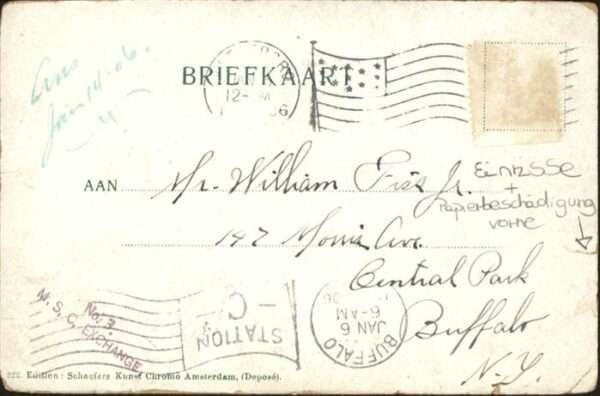 Ans
Jan 14-06.
BRIEFKAART
12-M
06
AAN
Mr. William Fiss Jr.
147 Morris Ave.
Central Park
Buffalo
N.Y.
Einrisse
+
Papierbeschädigung
vorne
No. 3.
W. S. C. EXCHANGE
STATION
C
BUFFALO
JAN 6
6-AM
06
222. Edition: Schaefers Kunst Chromo Amsterdam, (Deposé).